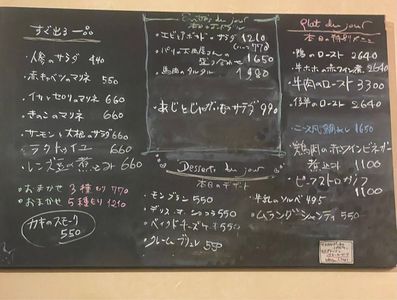 すぐ出る一品
・人参のサラダ 440
・赤キャベツのマリネ 550
・イカとセロリのマリネ 660
・きのこのマリネ 660
・サーモンと大根のサラダ 660
・ラタトゥイユ 660
・レンズ豆の煮こみ 660
・おまかせ 3種もり 770
・おまかせ 5種もり 1210
カキのスモーク
550
du jour
・エビとポテト・サラダ 1210
1650
・馬肉のタルタル 1980
・あじとじゃが・いものサラダ 990
Desserts du jour
本日のデザート
・モンブラン 550
550
・ベイクドチーズケーキ 550
・クレームブリュレ 550
・牛乳のソルベ 495
・ムラング・シャンティ 550
Plat du jour
本日の特別メニュー
・鴨のロースト 2640
・牛ホホの赤ワイン煮 2640
・牛肉のロースト 3300
・仔羊のロースト 2640
・ニース風 1650
・鶏肉の白ワインビネガー
煮込み 1100
・ビーフストロガノフ
1100